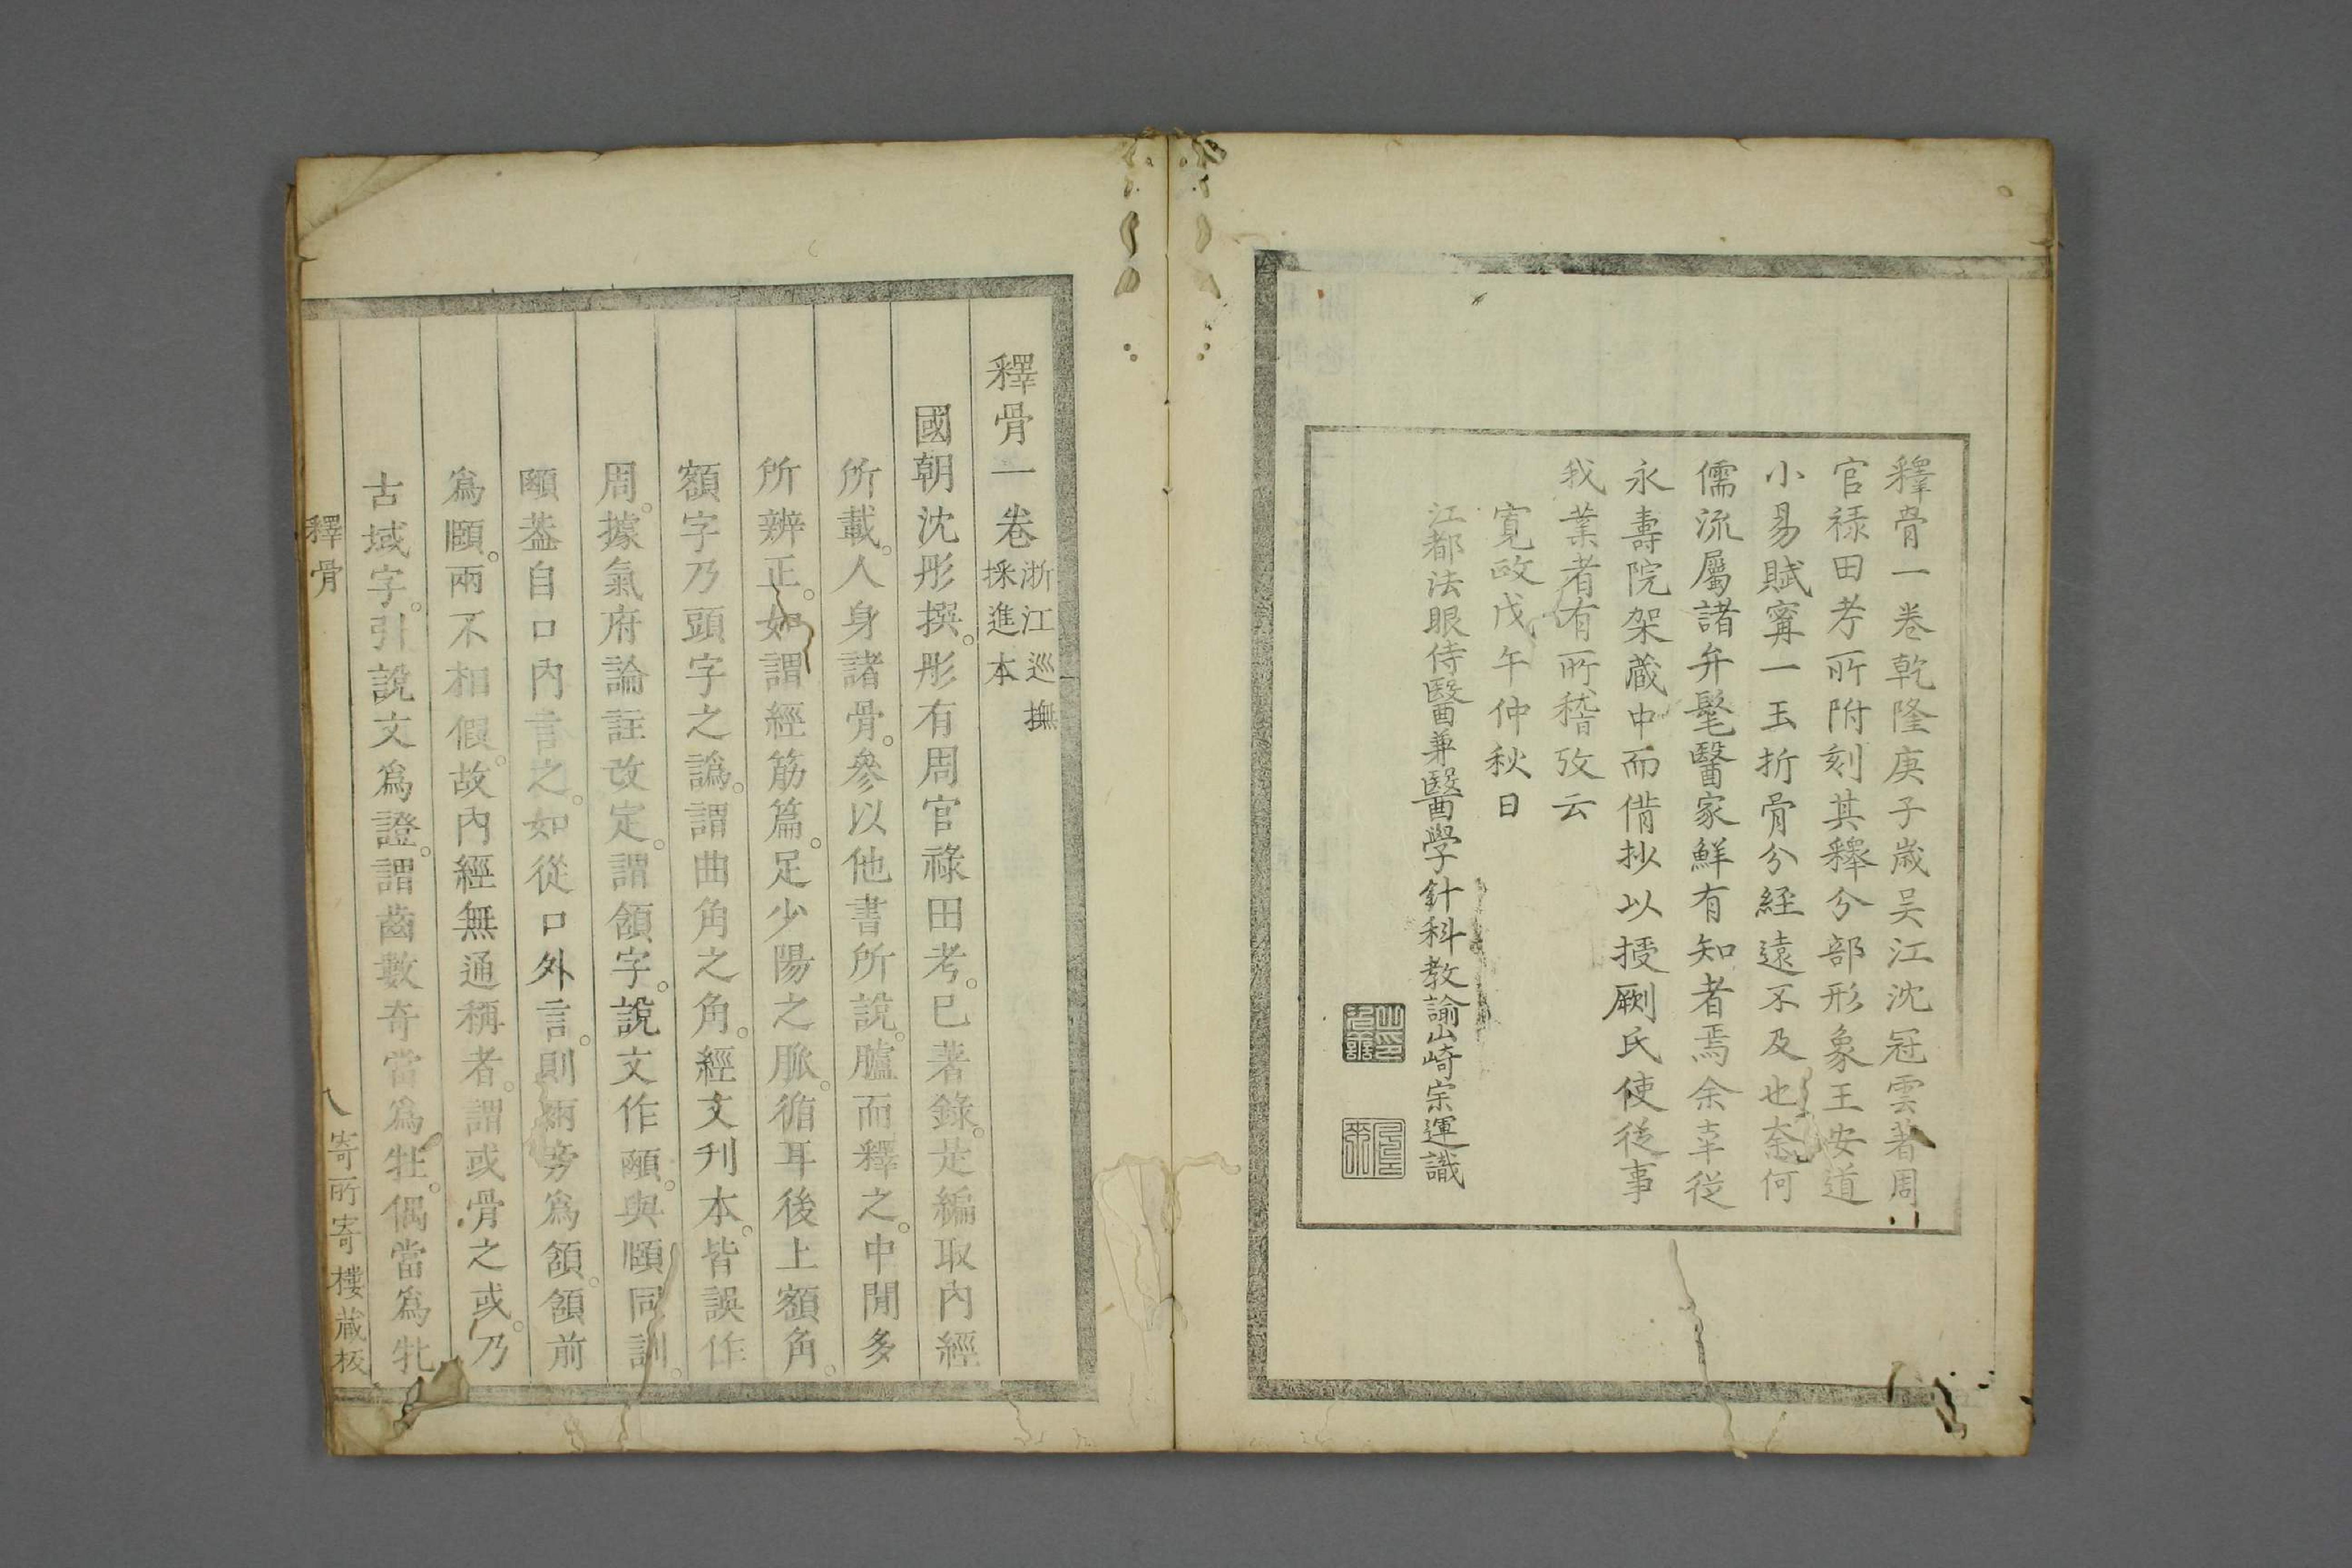 釋骨一卷乾隆庚子歳吴江沈冠雲著周
官禄田考所附刻其釋分部形象王安道
小易賦寗一玉折骨分經遠不及也奈何
儒流屬諸弁髦醫家鮮有知者焉余幸從
永壽院架蔵中而借抄以授劂氏使從事
我業者有所稽攷云
寛政戊午仲秋日
江都法眼侍醫兼醫學針科教諭山崎宗運識
釋骨一卷浙江巡撫採進本
國朝沈彤撰。彤有周官祿田考。已著錄。是編取內經
所載。人身諸骨。參以他書所說。臚而釋之。中閒多
所辨正。如謂經筋篇。足少陽之脈。循耳後上額角。
額字乃頭字之譌。謂曲角之角。經文刋本。皆誤作
周。據氣府論註改定。謂頷字。說文作𩑒。與頤同訓。
𩑒葢自口內言之。如從口外言。則兩旁爲頷。頷前
爲頤。兩不相假。故內經無通稱者。謂或骨之或。乃
古域字。引說文爲證。謂齒數奇當爲牡。偶當爲牝
釋骨
寄所寄樓蔵板